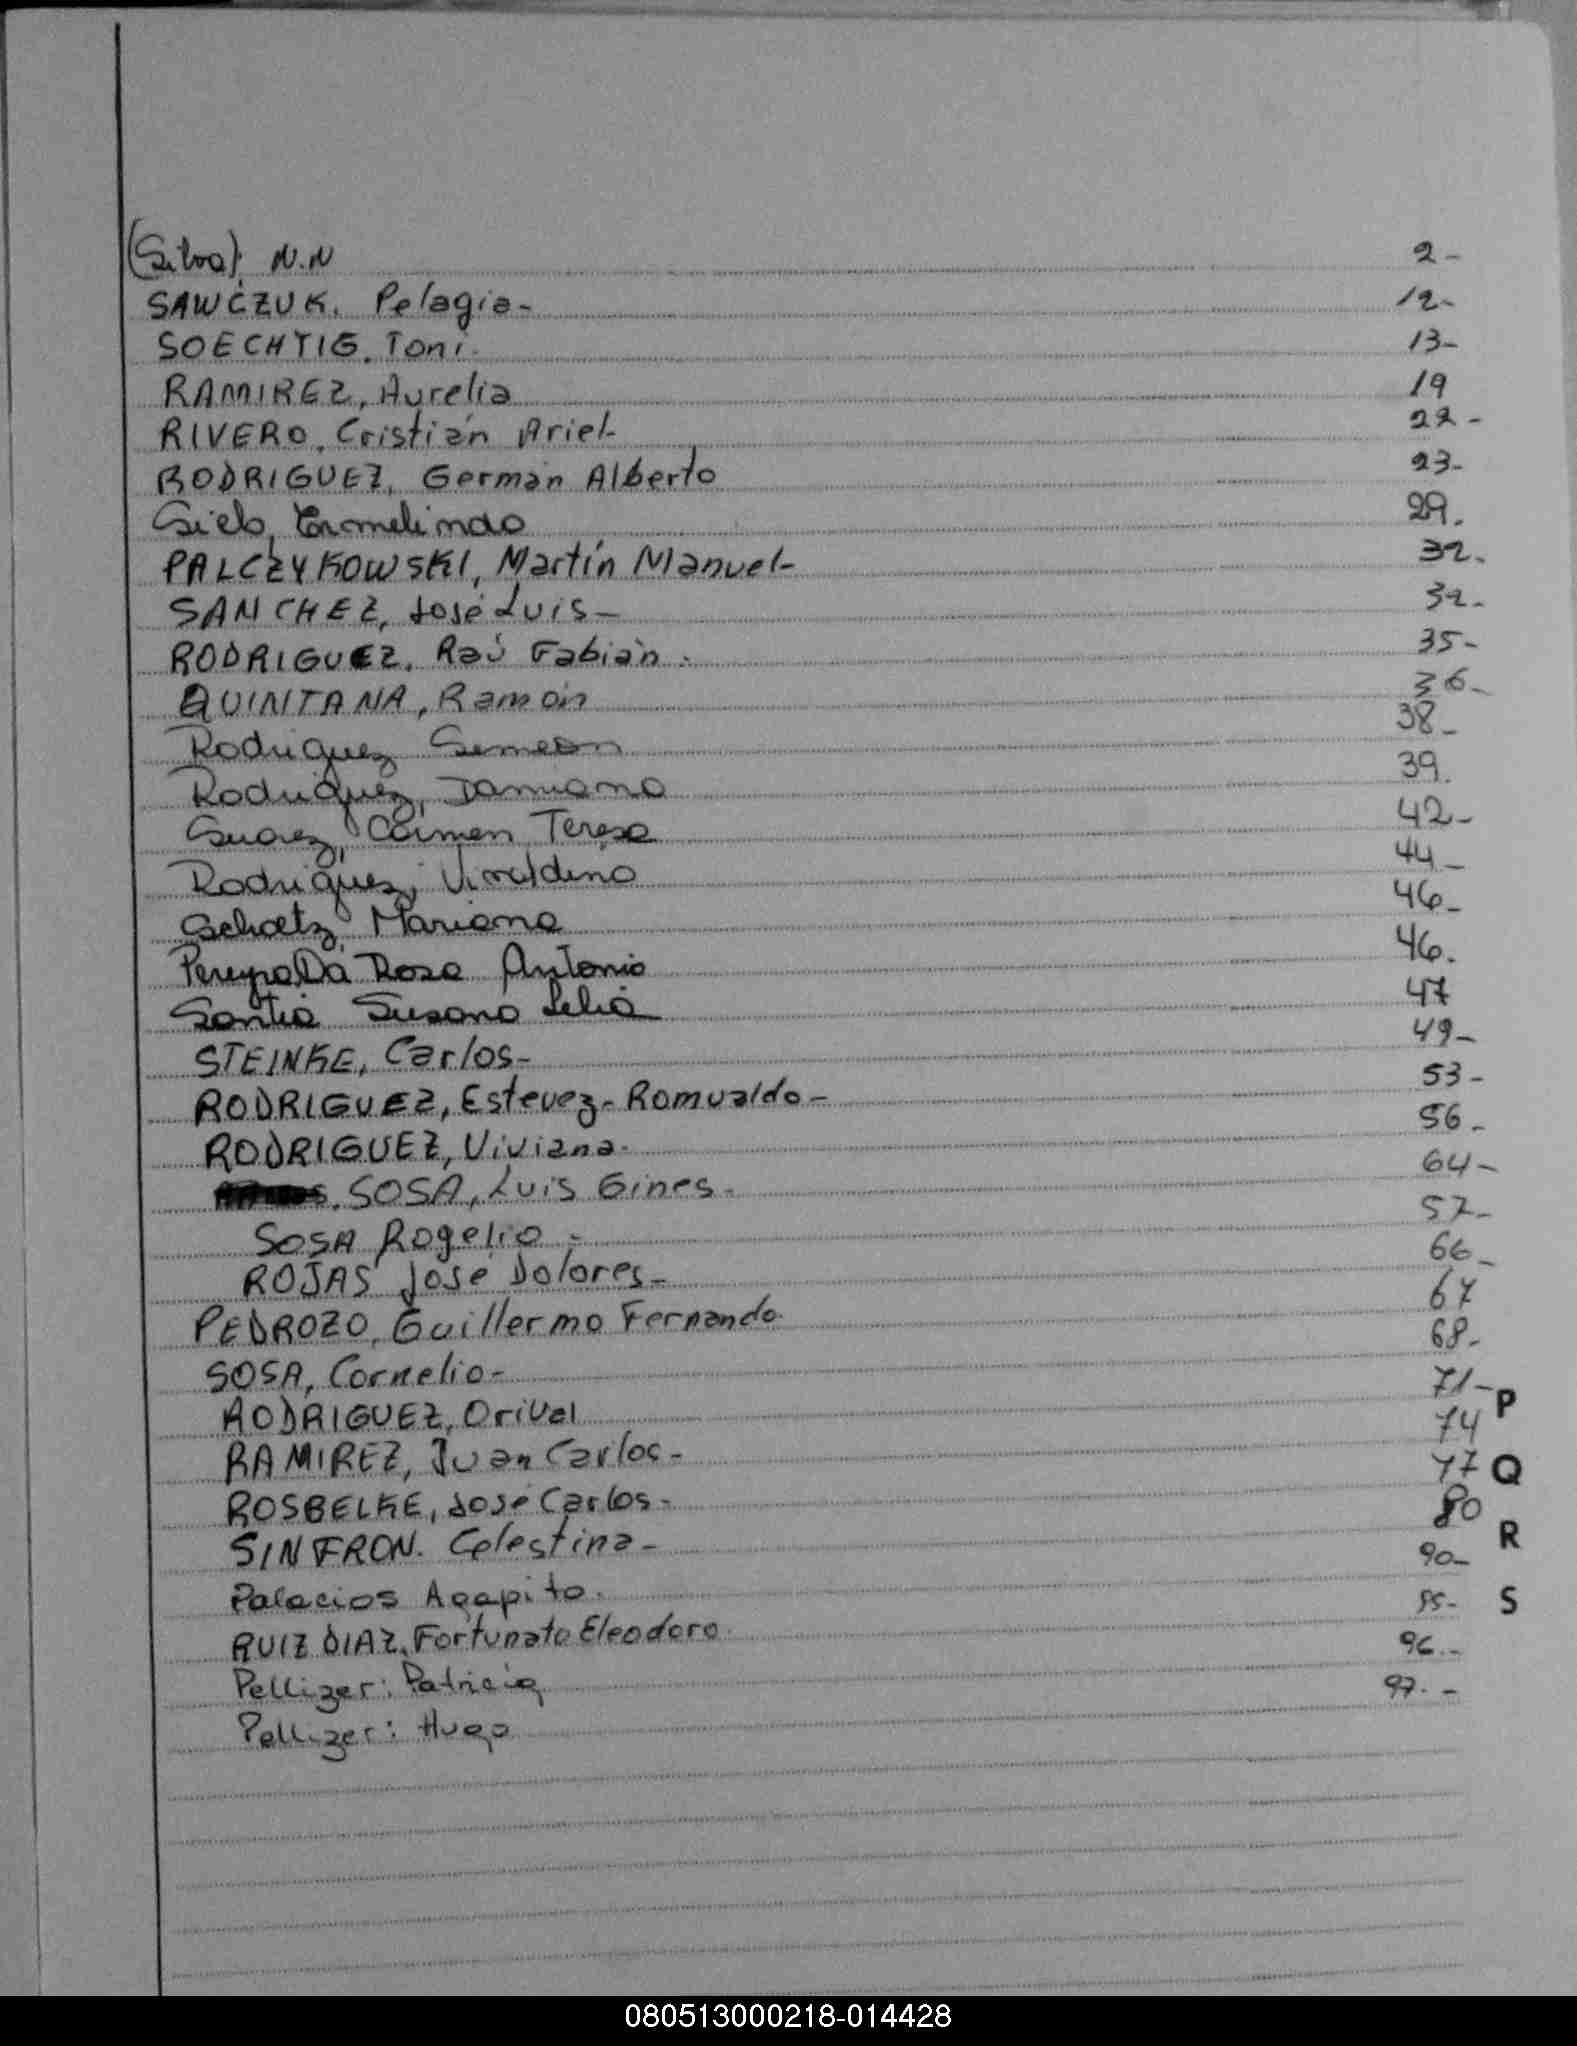 (Silva) N.N 2-
SAWCZUK, Pelagia- 12-
SOECHTIG. Toni. 13-
RAMIREZ, Aurelia 19
RIVERO, Cristián Ariel- 22-
RODRIGUEZ, Germán Alberto 23-
29.
PALCZYKOWSKI, Martín Manuel- 32.
SANCHEZ, José Luis- 32-
RODRIGUEZ, Raú Fabián. 35-
QUINTANA, Ramón 36-
Rodriguez Simeon 38-
Rodriguez, Damiana 39.
Suarez, Carmen Teresa 42-
Rodriguez, 44-
Schatz, Mariana 46-
Pereyra Da Rosa Antonio 46.
Santia Susana Lelia 47
STEINKE, Carlos- 49-
RODRIGUEZ, Estevez-Romualdo- 53-
RODRIGUEZ, Viviana. 56-
SOSA, Luis Gines- 64-
SOSA Rogelio- 57-
ROJAS José Dolores- 66-
PEDROZO, Guillermo Fernando 67
SOSA, Cornelio- 68-
RODRIGUEZ, Orival 71-
RAMIREZ, Juan Carlos- 74
ROSBELKE, José Carlos- 77
SINFRON. Celestina- 80
Palacios Agapito. 90-
RUIZ DIAZ, Fortunato Eleodoro.
Pellizer: Patricia 96.-
Pellizer: Hugo 97.-
P
Q
R
S
080513000218-014428